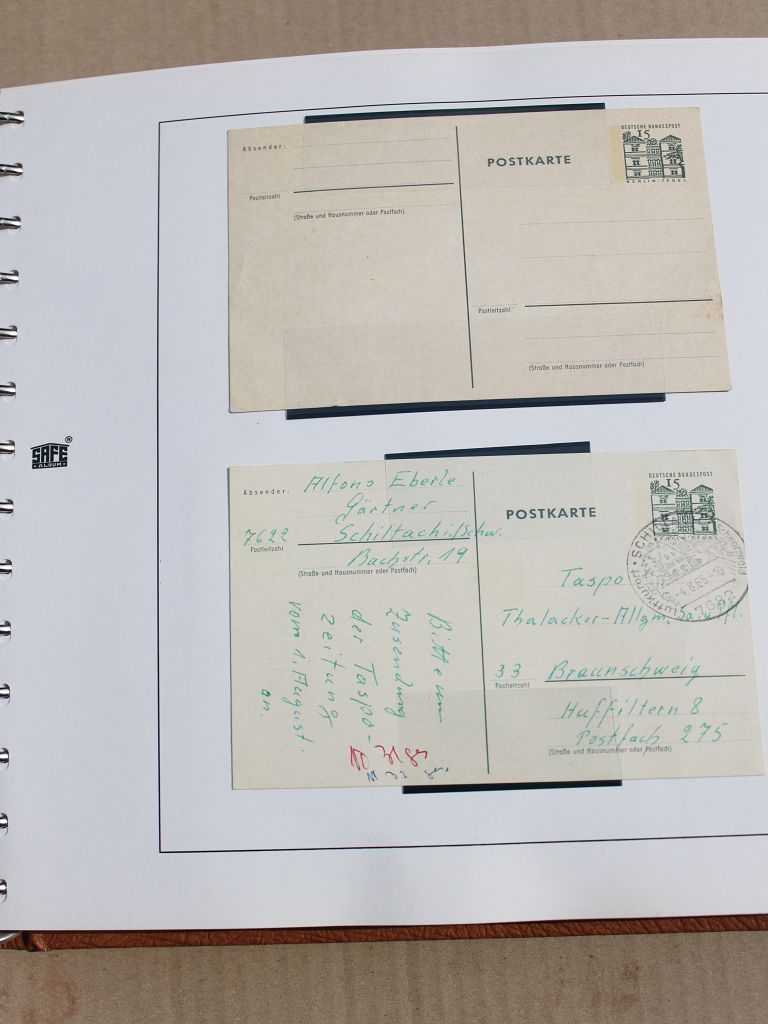 Absender:
POSTKARTE
DEUTSCHE BUNDESPOST
15
BERLIN-TEGEL
Postleitzahl
(Straße und Hausnummer oder Postfach)
Postleitzahl
(Straße und Hausnummer oder Postfach)
SAFE
ALBUM
®
Absender:
Alfons Eberle
Gärtner
7622 Schiltach i. Schw.
Postleitzahl
Bachstr. 19
(Straße und Hausnummer oder Postfach)
Bitte um
Zusendung
der Taspo-
zeitung
vom 1. August
an.
POSTKARTE
DEUTSCHE BUNDESPOST
15
Luftkurort
-4.8.65-10
7622
Taspo
Thalacker-Allgm.
33 Braunschweig
Postleitzahl
Huffiltern 8
Postfach 275
(Straße und Hausnummer oder Postfach)